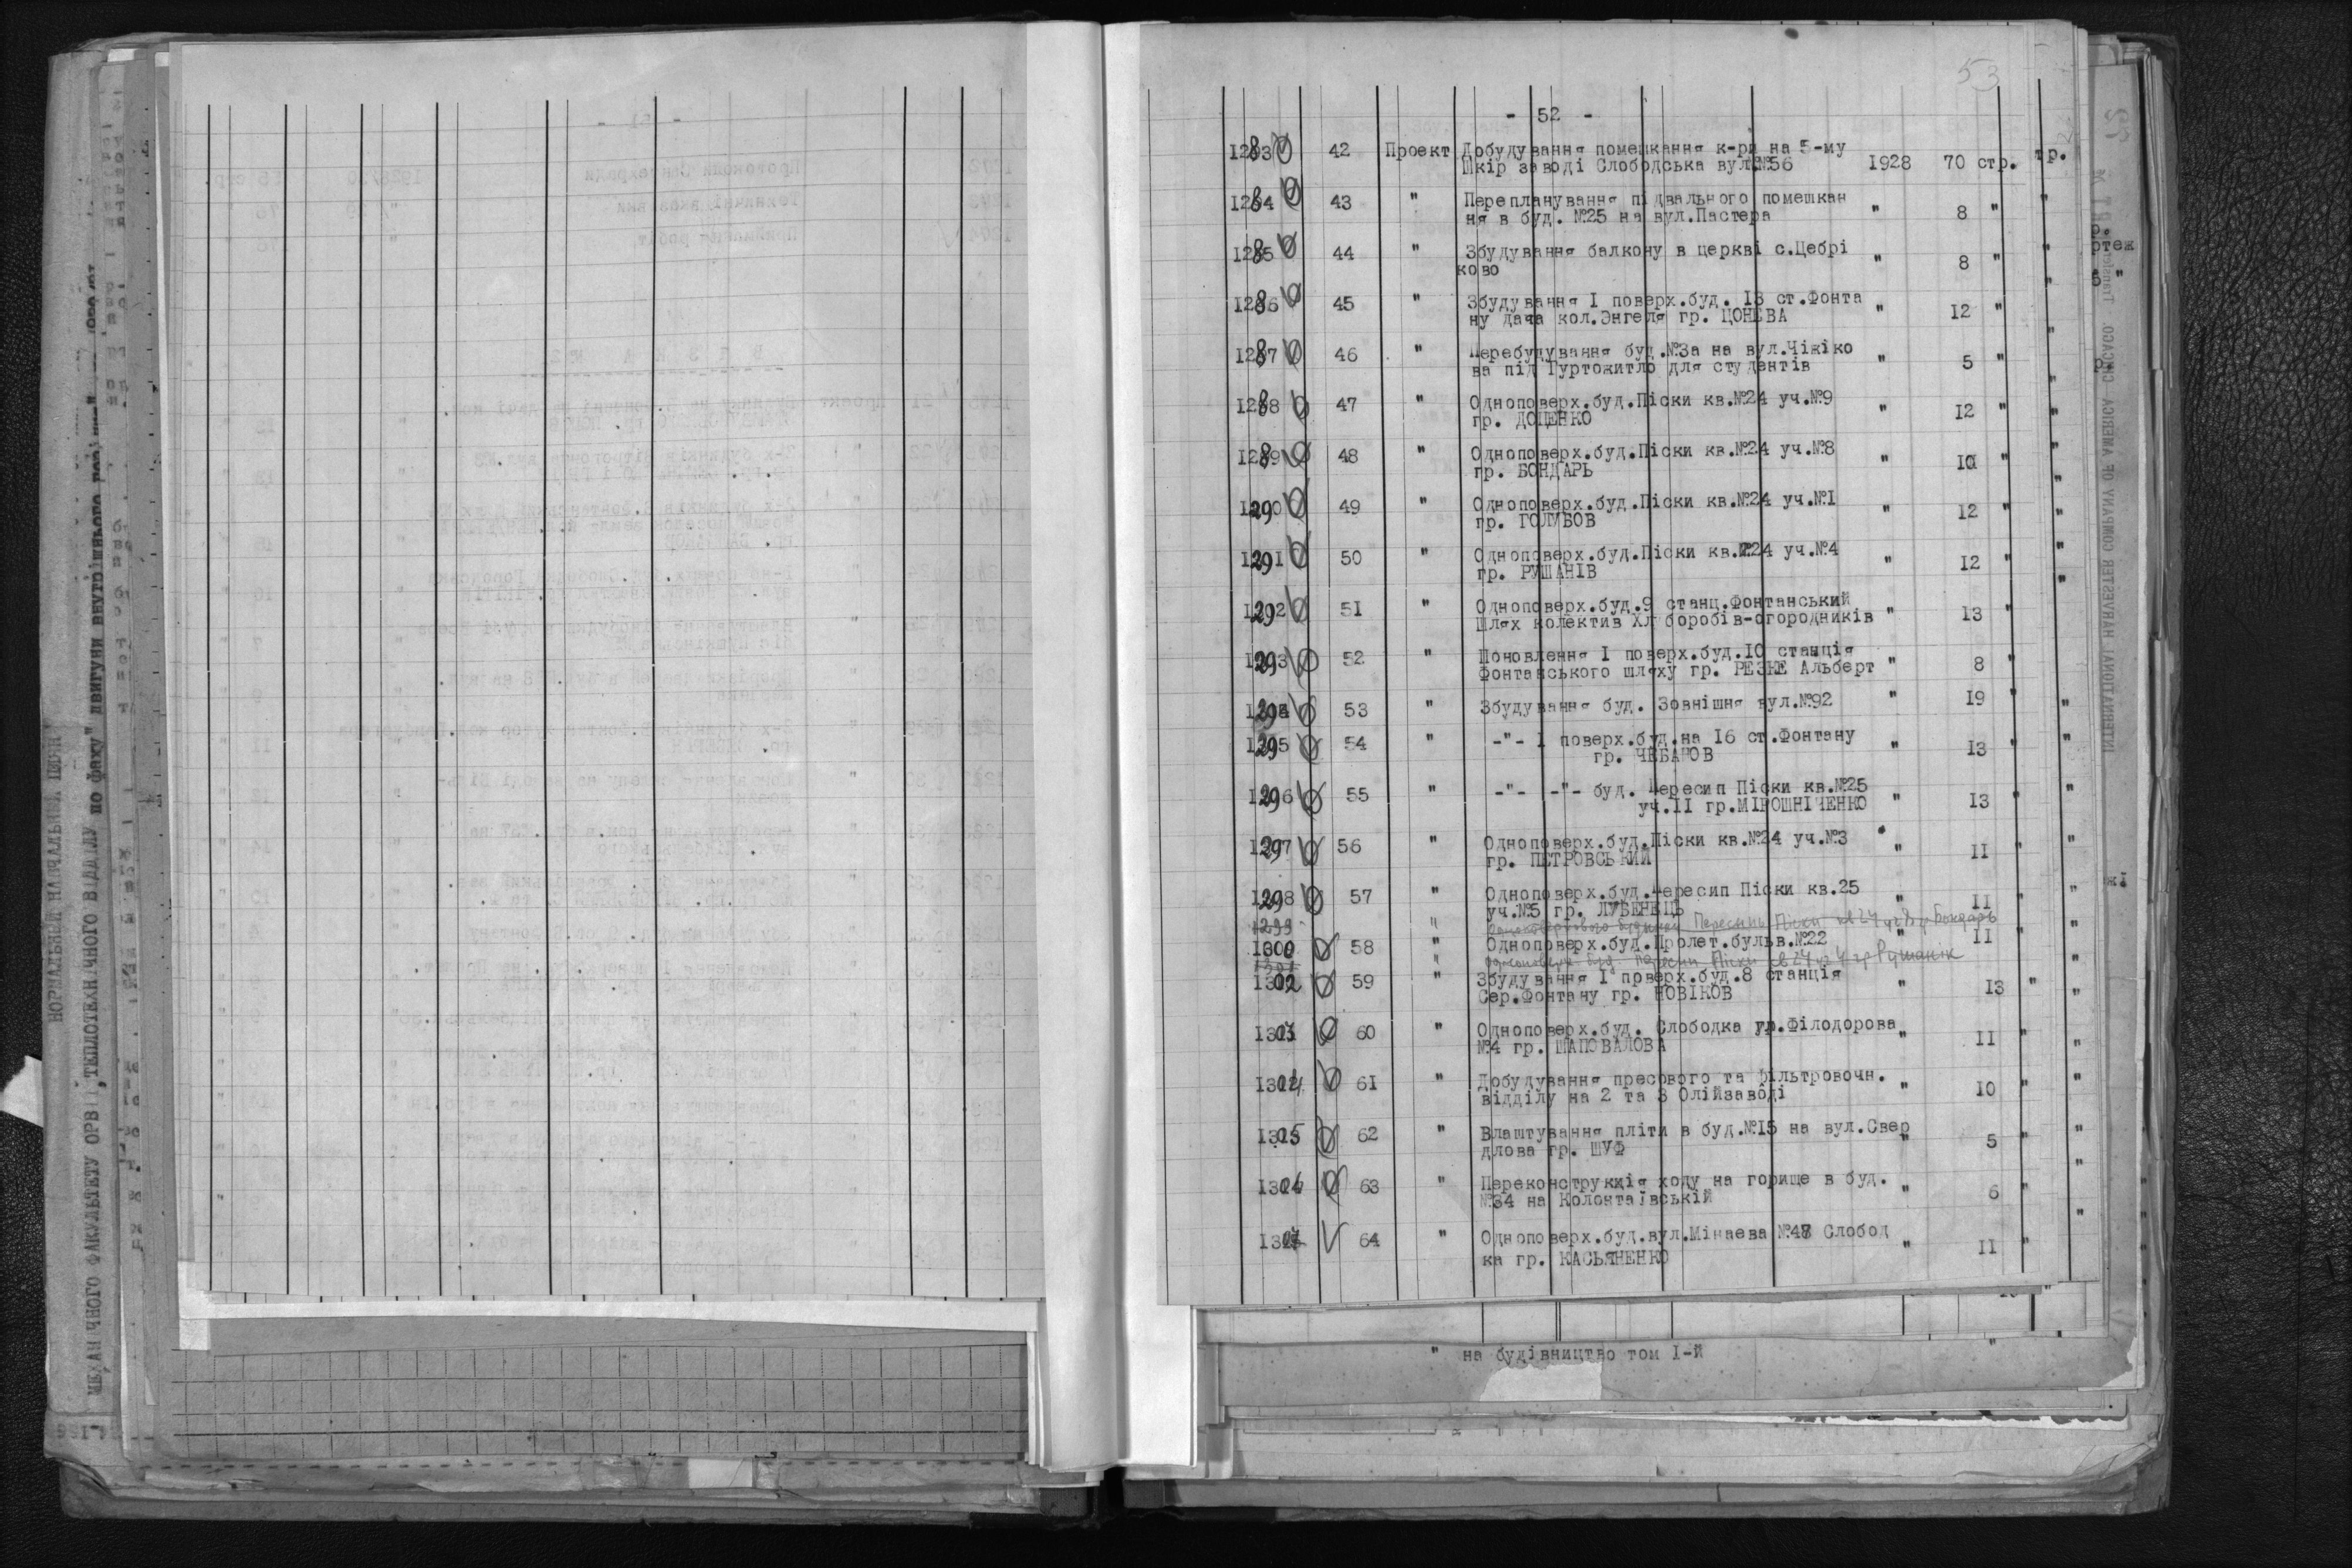 53
- 52 -
1283 42 Проект Добудування помешкання к-ри на 5-му
Шкір заводі Слободська вул.№56 1928 70 стр.
1284 43 " Перепланування підвального помешкан
ня в буд. №25 на вул.Пастера " 8 "
1285 44 " Збудування балкону в церкві с.Цебрі
ково " 8 "
1286 45 " Збудування I поверх.буд. I3 ст.Фонта
ну дача кол.Энгеля гр. ЦОНЕВА " I2 "
1287 46 " Перебудування буд.№3а на вул.Чіжіко
ва під Гуртожитло для студентів " 5 "
1288 47 " Одноповерх.буд.Піски кв.№24 уч.№9
гр. ДОЦЕНКО " I2 "
1289 48 " Одноповерх.буд.Піски кв.№24 уч.№8
гр. БОНДАРЬ " "
1290 49 " Одноповерх.буд.Піски кв.№24 уч.№I
гр. ГОЛУБОВ " I2 "
1291 50 " Одноповерх.буд.Піски кв.№24 уч.№4
гр. РУШАНІВ " I2 "
1292 51 " Одноповерх.буд.9 станц.Фонтанський
Шлях колектив Хліборобів-огородників " I3 "
1293 52 " Поновлення I поверх.буд.IO станція
Фонтанського шляху гр. РЕЗКЕ Альберт " 8 "
1294 53 " Збудування буд. Зовнішня вул.№92 " I9 "
1295 54 " -"- I поверх.буд.на I6 ст.Фонтану
гр. ЧЕБАНОВ " I3 "
1296 55 " -"- -"- буд. Пересип Піски кв.№25
уч.II гр.МІРОШНІЧЕНКО " I3 "
1297 56 " Одноповерх.буд.Піски кв.№24 уч.№3
гр. ПЕТРОВСЬКИЙ " II "
1298 57 " Одноповерх.буд.Пересип Піски кв.25
уч.№5 гр. ЛУБЕНЕЦЬ " II "
1299 " Пересипь Піски кв 24 уч 8 гр Бондарь
1300 58 " Одноповерх.буд.Пролет.бульв.№22 " II "
1301 " Одноповерх буд. Пересип Піски кв 24 уч 4 гр Рушанік
1302 59 " Збудування I поверх.буд.8 станція
Сер.Фонтану гр. НОВІКОВ " I3 "
1303 60 " Одноповерх.буд. Слободка ур.Філодорова
№4 гр. ШАПОВАЛОВА " II "
1304 61 " Добудування пресового та фільтровочн.
відділу на 2 та 3 Олійзаводі " IO "
1305 62 " Влаштування пліти в буд.№I5 на вул.Свер
длова гр. ШУФ " 5 "
1306 63 " Переконструкція ходу на горище в буд.
№34 на Колонтаївській " 6 "
1307 64 " Одноповерх.буд.вул.Мінаева №48 Слобод
ка гр. КАСЬЯНЕНКО " II "
" на будівництво том I-й "
МЕХАНІЧНОГО ФАКУЛЬТЕТУ ОРВІ, ТЕПЛОТЕХНІЧНОГО ВІДДІЛУ по фаху" двигуни внутрішнього
INTERNATIONAL HARVESTER COMPANY OF AMERICA CHICAGO